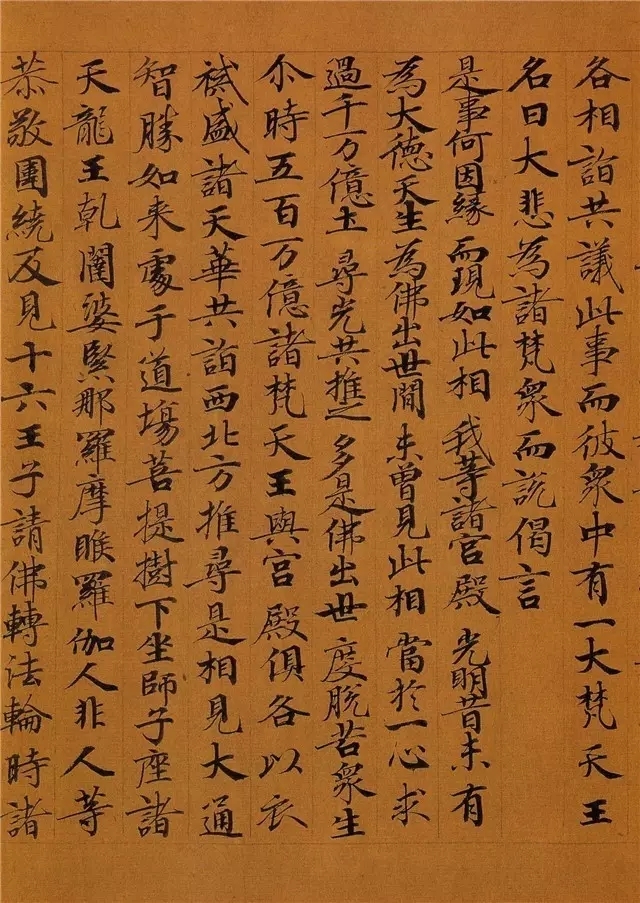 各相詣共議此事而彼衆中有一大梵天王
名曰大悲為諸梵衆而說偈言
是事何因緣 而現如此相 我等諸宮殿 光明昔未有
為大德天生 為佛出世間 未曾見此相 當於一心求
過千万億土 尋光共推之 多是佛出世 度脫苦衆生
尒時五百万億諸梵天王與宮殿俱各以衣
裓盛諸天華共詣西北方推尋是相見大通
智勝如来處于道場菩提樹下坐師子座諸
天龍王乾闥婆緊那羅摩睺羅伽人非人等
恭敬圍繞及見十六王子請佛轉法輪時諸